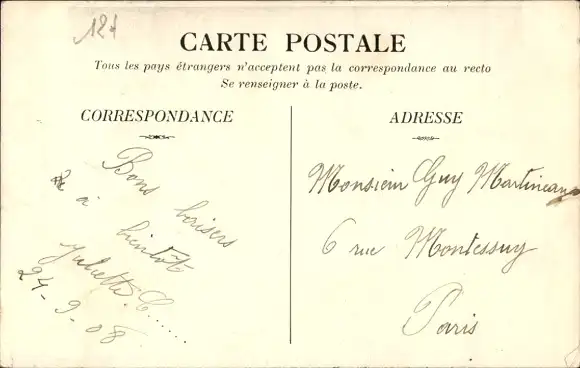 12f
CARTE POSTALE
Tous les pays étrangers n'acceptent pas la correspondance au recto
Se renseigner à la poste.
CORRESPONDANCE
Bons baisers
& à bientôt
Juliette C......
24-9-08
ADRESSE
Monsieur Guy Martineau
6 rue Montessuy
Paris